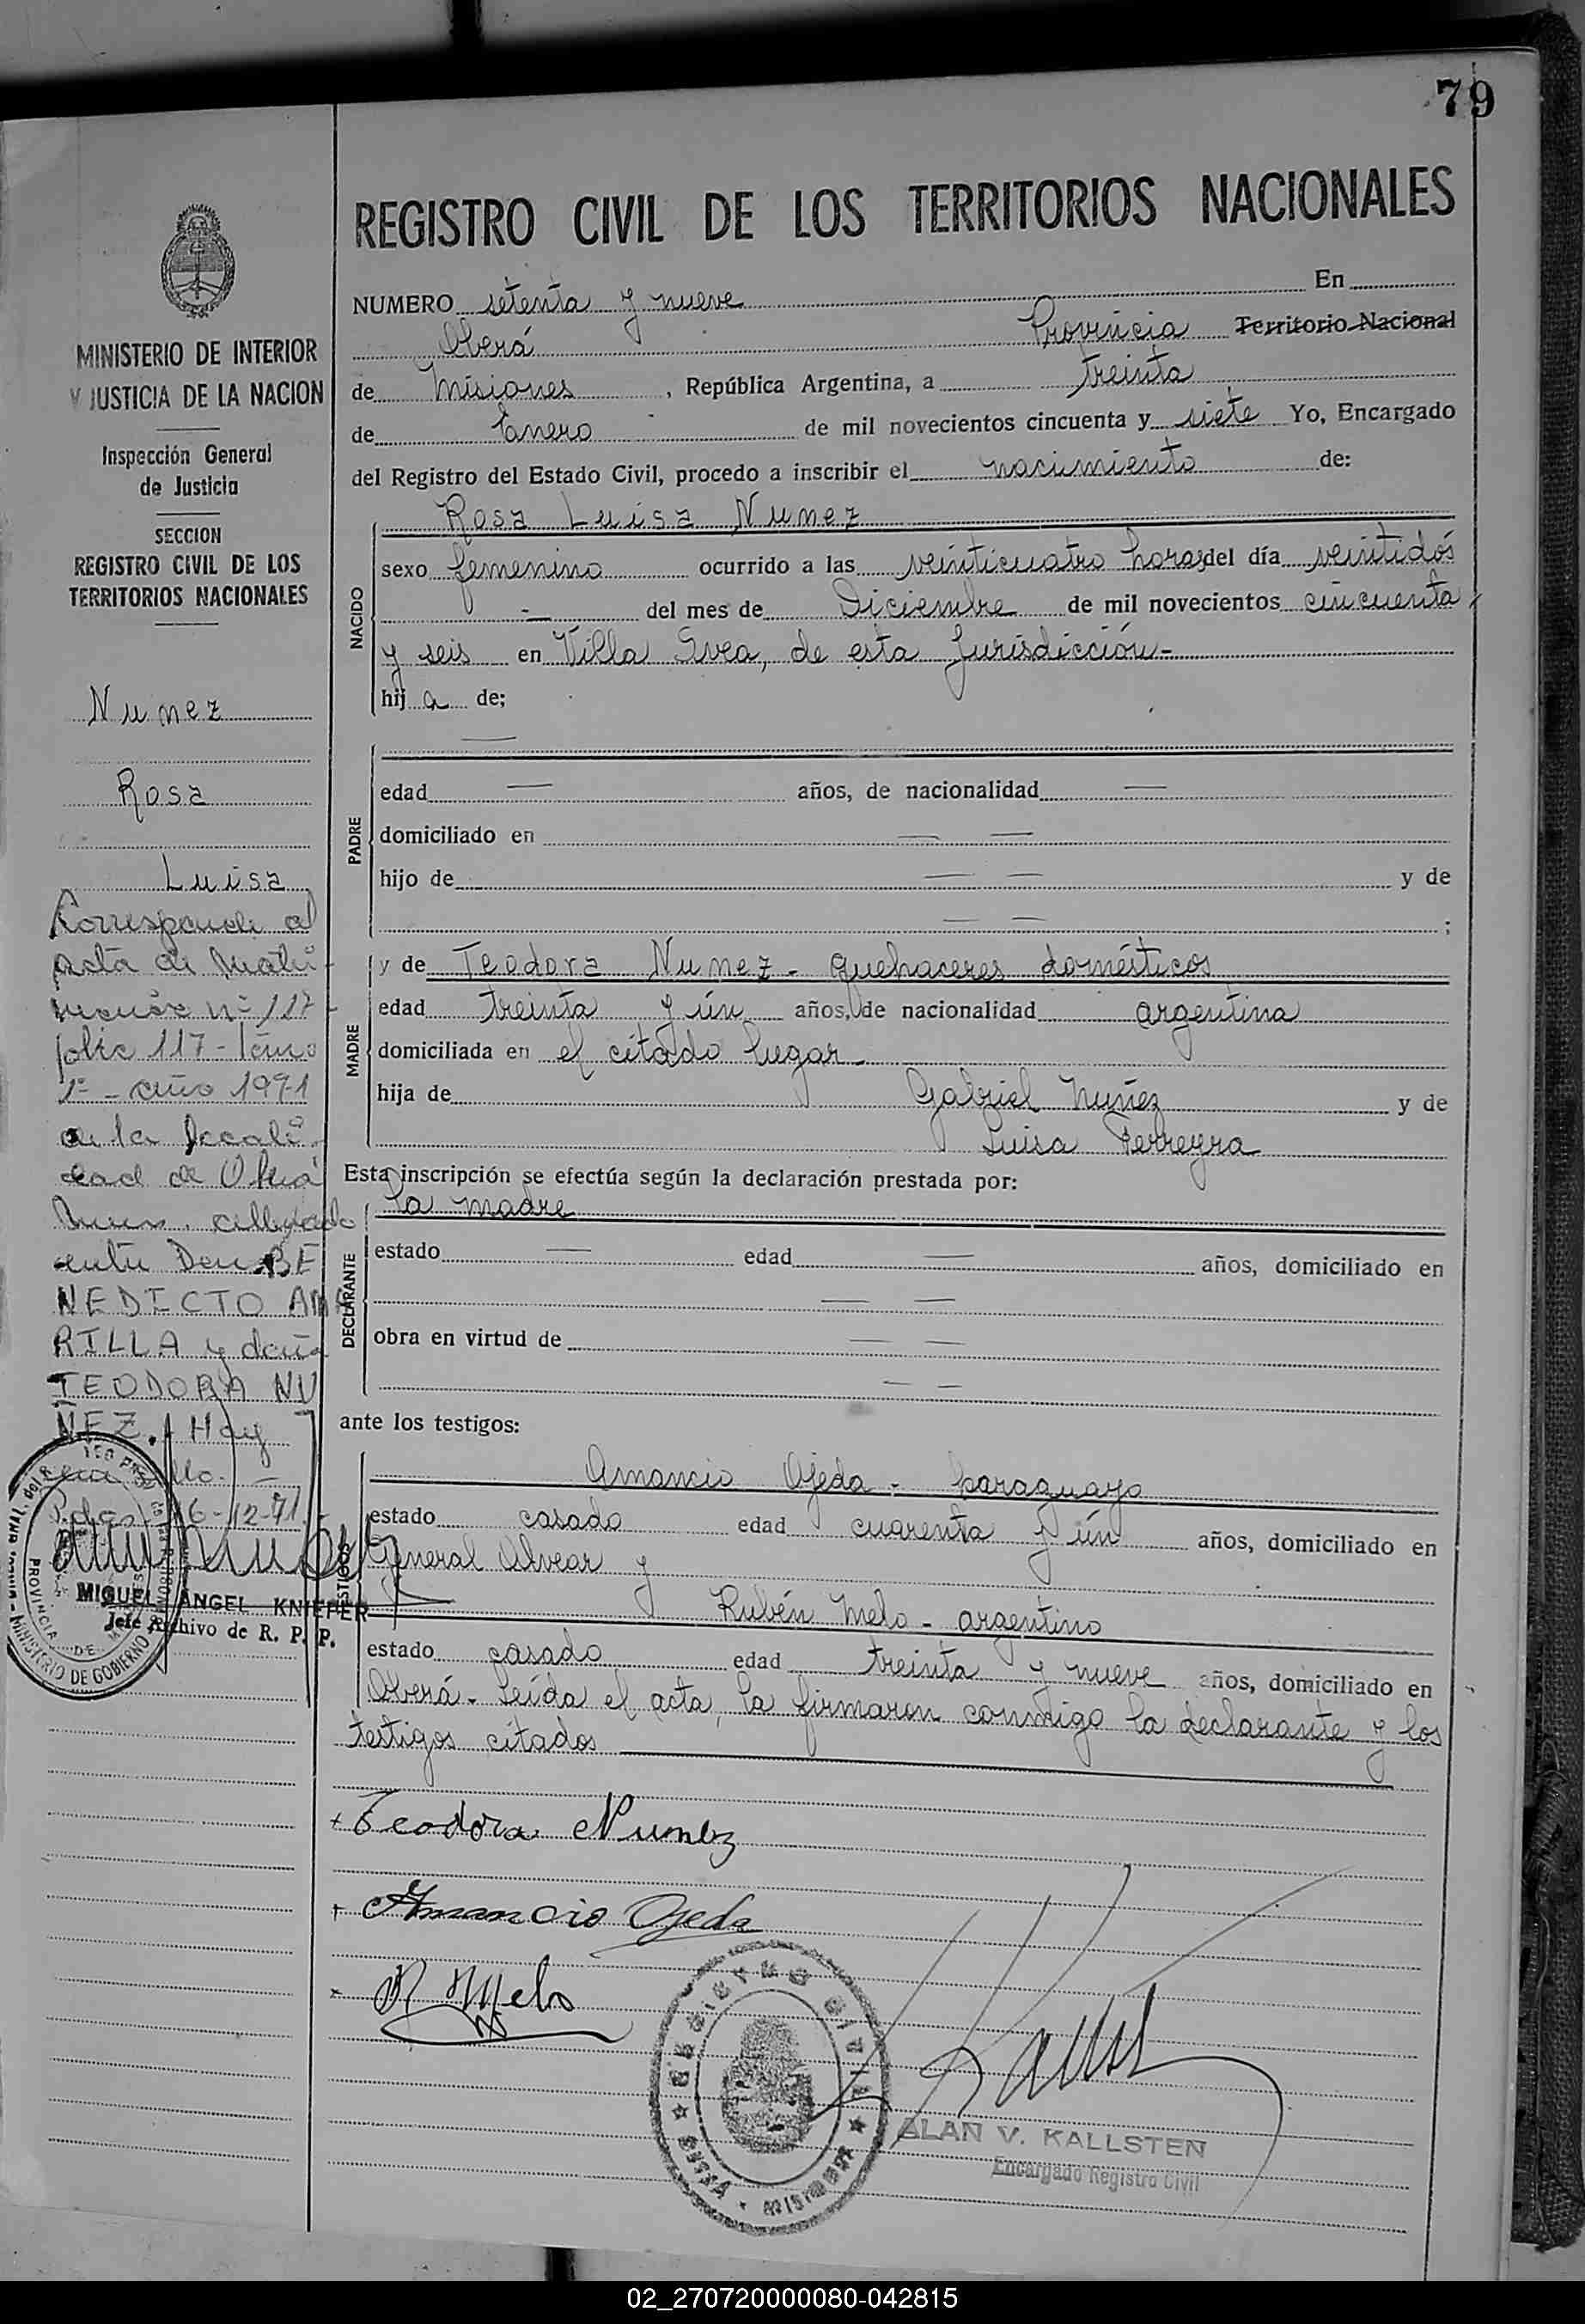 79
REGISTRO CIVIL DE LOS TERRITORIOS NACIONALES
MINISTERIO DE INTERIOR
Y JUSTICIA DE LA NACION
Inspección General
de Justicia
SECCION
REGISTRO CIVIL DE LOS
TERRITORIOS NACIONALES
Nunez
Rosa
Luisa
Corresponde al
acta de Matri-
monio nº 117
folio 117 - Tomo
1º - año 1971
de la locali-
dad de Oberá
entre Don BE
NEDICTO AMA
RILLA y doña
TEODORA NU
ÑEZ. Hoy
16-12-71.
MIGUEL ANGEL KNIEFER
Jefe Archivo de R. P. P.
PROVINCIA DE
MINISTERIO DE GOBIERNO
NUMERO setenta y nueve En
Oberá Provincia Territorio Nacional
de Misiones , República Argentina, a treinta
de Enero de mil novecientos cincuenta y siete Yo, Encargado
del Registro del Estado Civil, procedo a inscribir el nacimiento de:
NACIDO
Rosa Luisa Nunez
sexo femenino ocurrido a las veinticuatro horas del día veintidós
- del mes de Diciembre de mil novecientos cincuenta
y seis en Villa Svea, de esta Jurisdicción-
hij a de;
PADRE
—
edad — años, de nacionalidad —
domiciliado en — —
hijo de — — y de
— — ;
MADRE
y de Teodora Nunez - quehaceres domésticos
edad treinta y ún años, de nacionalidad argentina
domiciliada en el citado lugar -
hija de Gabriel Nuñez y de
Luisa Ferreyra
Esta inscripción se efectúa según la declaración prestada por:
DECLARANTE
la madre
estado — edad — años, domiciliado en
— —
obra en virtud de — —
— —
ante los testigos:
TESTIGOS
Amancio Ojeda - paraguayo
estado casado edad cuarenta y ún años, domiciliado en
General Alvear y
Rubén Melo - argentino
estado casado edad treinta y nueve años, domiciliado en
Oberá. Leída el acta, la firmaron conmigo la declarante y los
testigos citados
Teodora Nunez
Amancio Ojeda
R Melo
REGISTRO CIVIL
OBERA MISIONES
ALAN V. KALLSTEN
Encargado Registro Civil
02_270720000080-042815